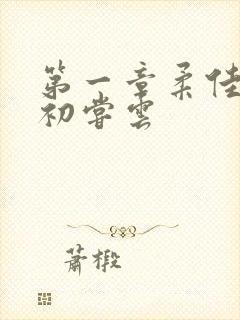 第一章柔佳
初尝雲
萧椴